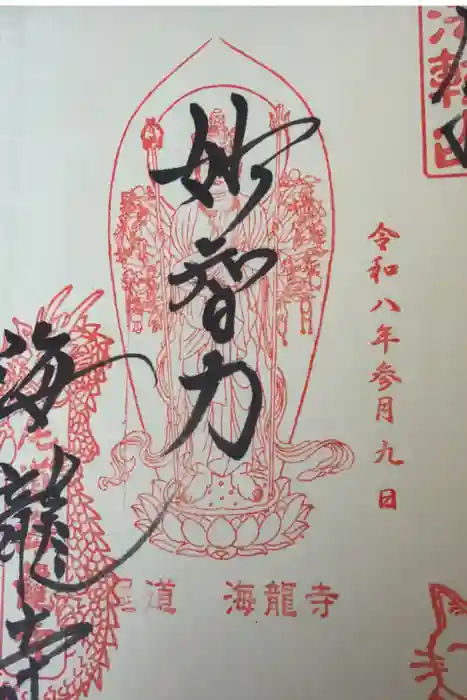 令和八年参月九日
妙智力
海龍寺
道 海龍寺